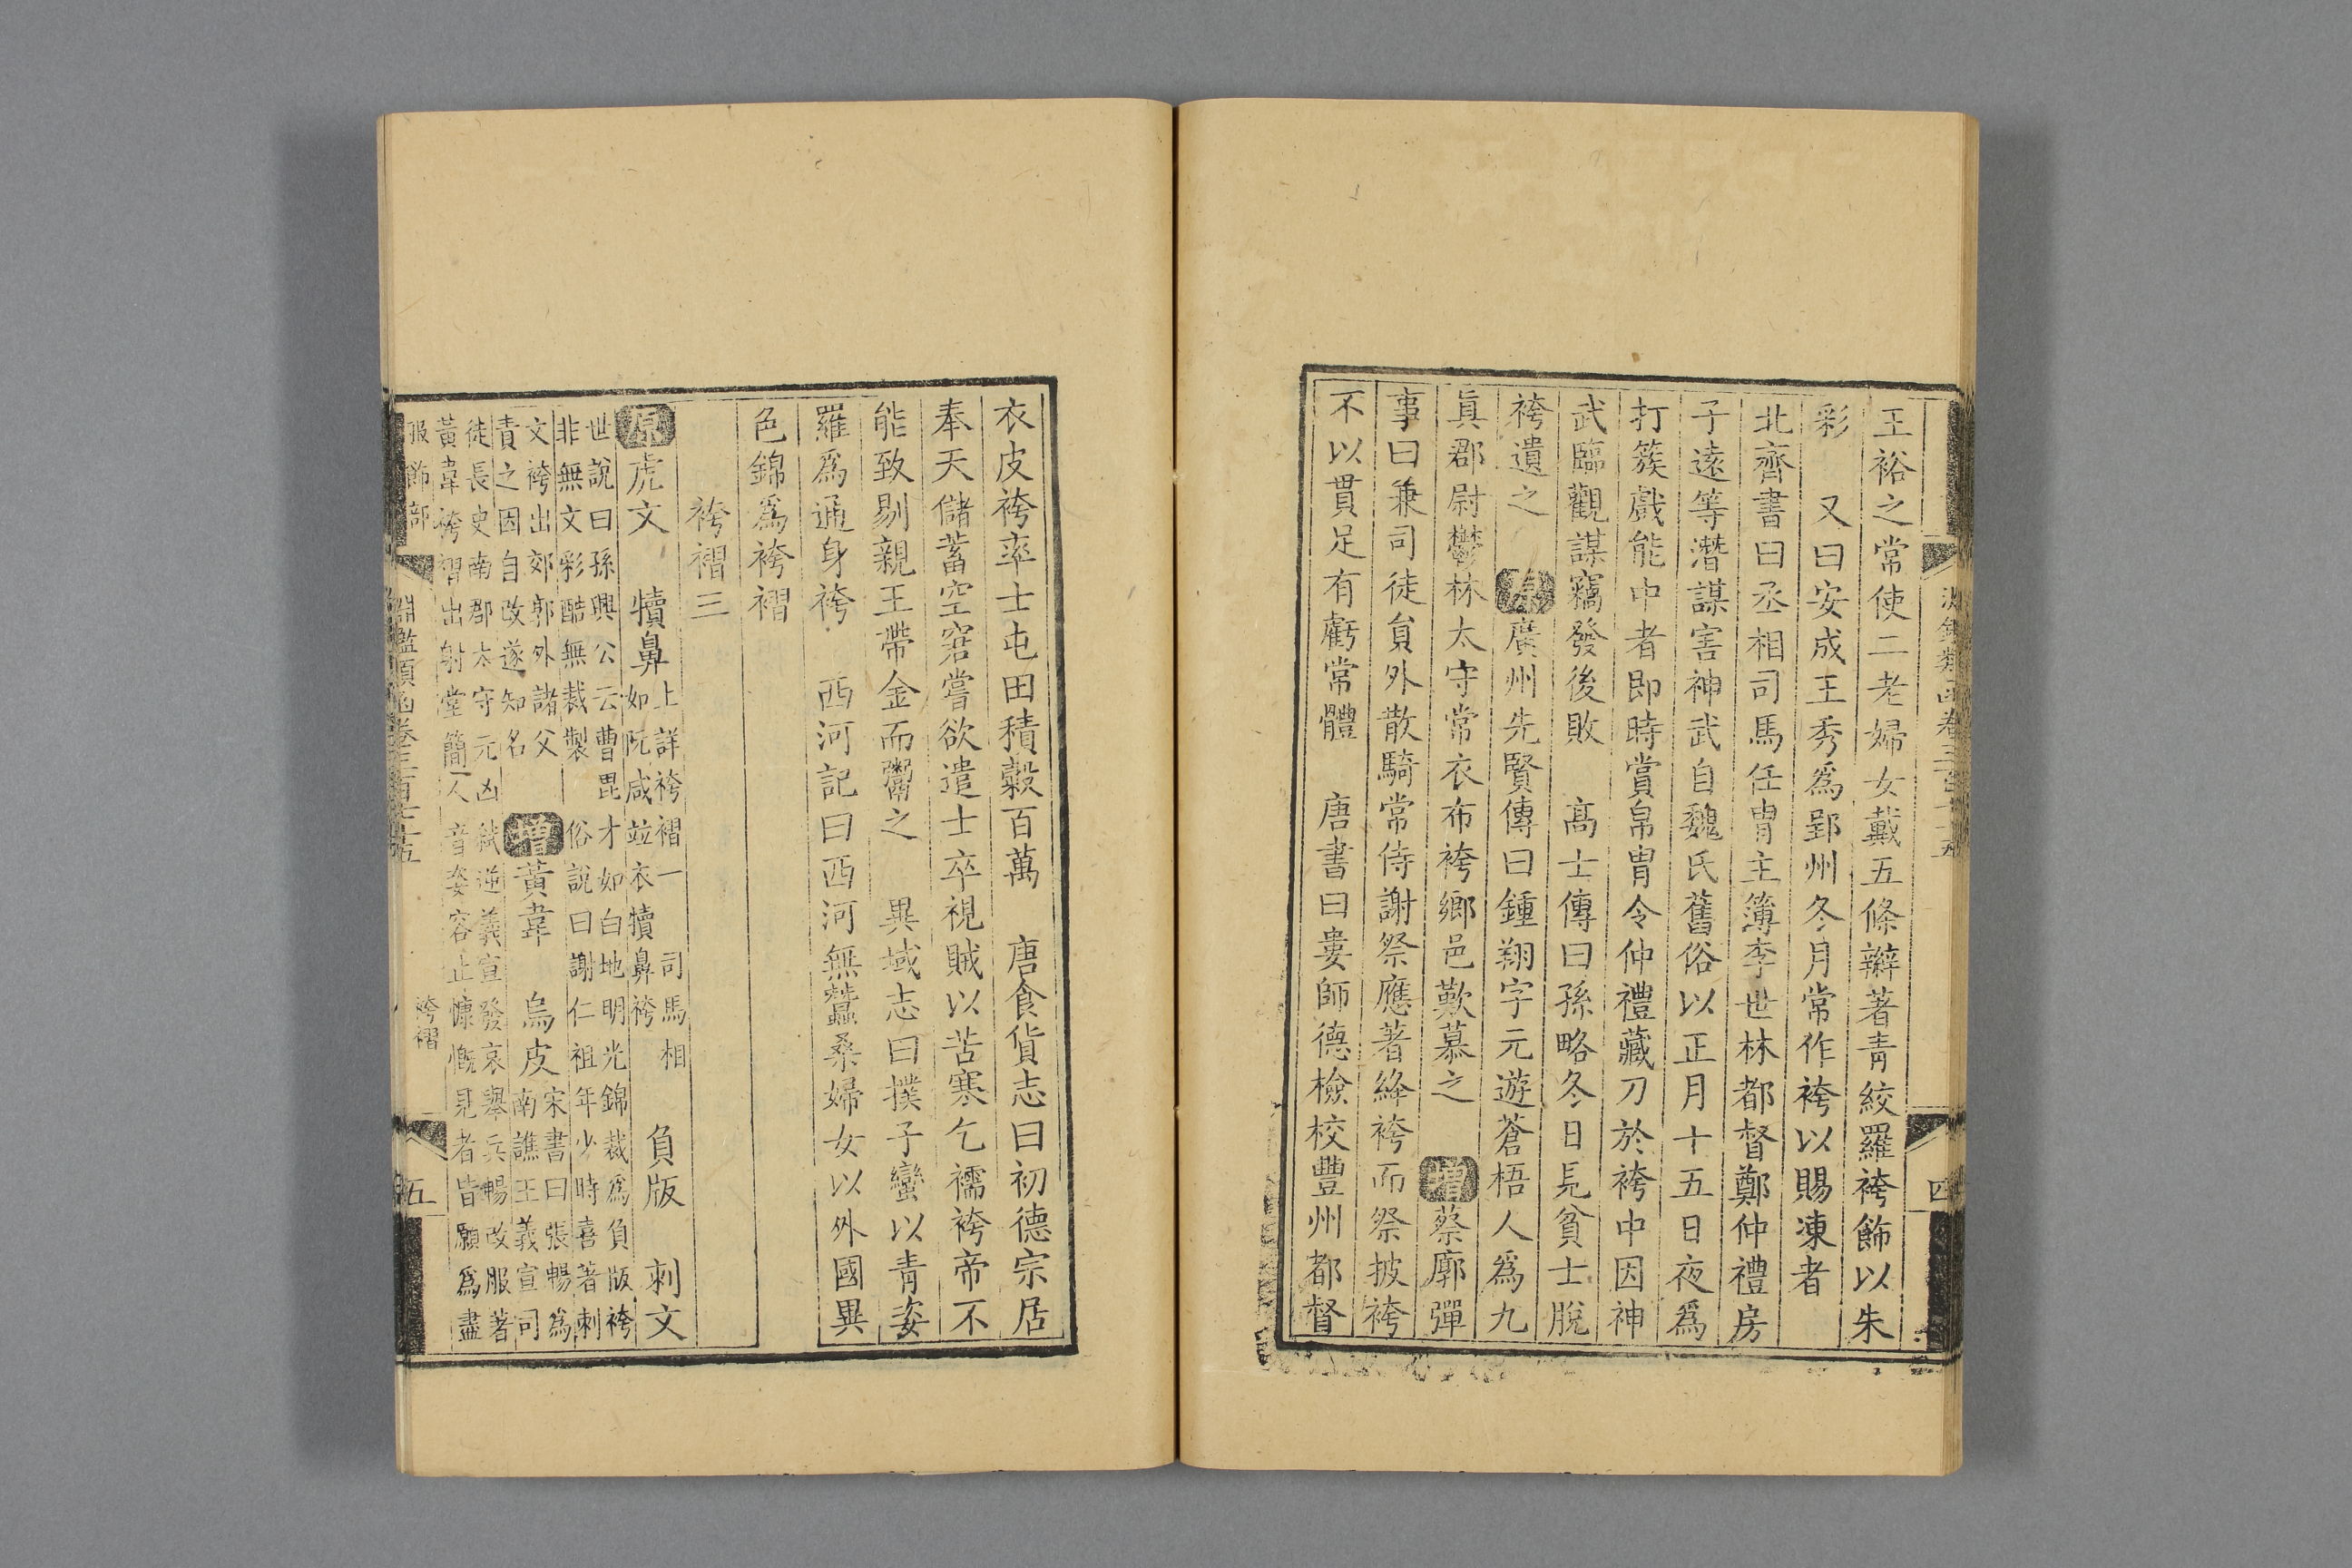 王裕之常使二老婦女戴五條辮著青絞羅袴飾以朱
彩　又曰安成王秀爲郢州冬月常作袴以賜凍者
北齊書曰丞相司馬任胄主簿李世林都督鄭仲禮房
子遠等潛謀害神武自魏氏舊俗以正月十五日夜爲
打簇戲能中者即時賞帛胄令仲禮藏刀於袴中因神
武臨觀謀竊發後敗　高士傳曰孫略冬日見貧士脫
袴遺之　原廣州先賢傳曰鍾翔字元遊蒼梧人爲九
眞郡尉鬱林太守常衣布袴鄉邑歎慕之　增蔡廓彈
事曰兼司徒員外散騎常侍謝祭應著絳袴而祭披袴
不以貫足有虧常體　唐書曰婁師德檢校豐州都督
四
衣皮袴率士屯田積穀百萬　唐食貨志曰初德宗居
奉天儲蓄空窘嘗欲遣士卒視賊以苦寒乞襦袴帝不
能致剔親王帶金而鬻之　異域志曰撲子蠻以青娑
羅爲通身袴　西河記曰西河無蠶桑婦女以外國異
色錦爲袴褶
袴褶三
原虎文　犢鼻上詳袴褶一　司馬相如阮咸竝衣犢鼻袴　負版　刺文
世說曰孫興公云曹毘才如白地明光錦裁爲負版袴
非無文彩酷無裁製　俗說曰謝仁祖年少時喜著刺
文袴出郊郭外諸父責之因自改遂知名　增黃韋　烏皮宋書曰張暢爲南譙王義宣司
徒長史南郡太守元凶弑逆義宣發哀舉兵暢改服著
黃韋袴褶出射堂簡人音姿容止慷慨見者皆願爲盡
服飾部
淵鑑類函卷三百七十五
袴褶
五